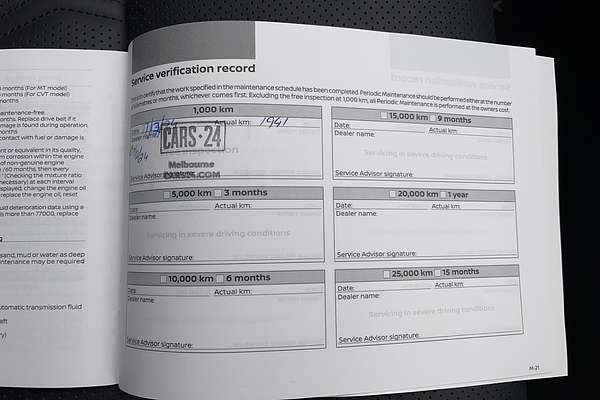 months (For MT model)
months (For CVT model)
months
maintenance-free.
months. Replace drive belt if
damage is found during operation.
contact with fuel or damage is
or equivalent in its quality,
corrosion within the engine
non-genuine engine
/60 months, then every
(Checking the mixture ratio
necessary) at each interval
displayed, change the engine oil
replace the engine oil, reset
fluid deterioration data using a
is more than 77000, replace
sand, mud or water as deep
maintenance may be required
automatic transmission fluid
Service verification record
certify that the work specified in the maintenance schedule has been completed. Periodic Maintenance should be performed either at the number
of kilometres or months, whichever comes first. Excluding the free inspection at 1,000 km, all Periodic Maintenance is performed at the owners cost.
1,000 km
Actual km: 1941
CARS·24
inspection
Melbourne
CARS24.COM
Service Advisor signature:
5,000 km 3 months
Date: Actual km:
Dealer name:
Servicing in severe driving conditions
Service Advisor signature:
10,000 km 6 months
Date: Actual km:
Dealer name:
Service Advisor signature:
15,000 km 9 months
Date: Actual km:
Dealer name:
Servicing in severe driving conditions
Service Advisor signature:
20,000 km 1 year
Date: Actual km:
Dealer name:
Service Advisor signature:
25,000 km 15 months
Date: Actual km:
Dealer name:
Servicing in severe driving conditions
Service Advisor signature:
M-21